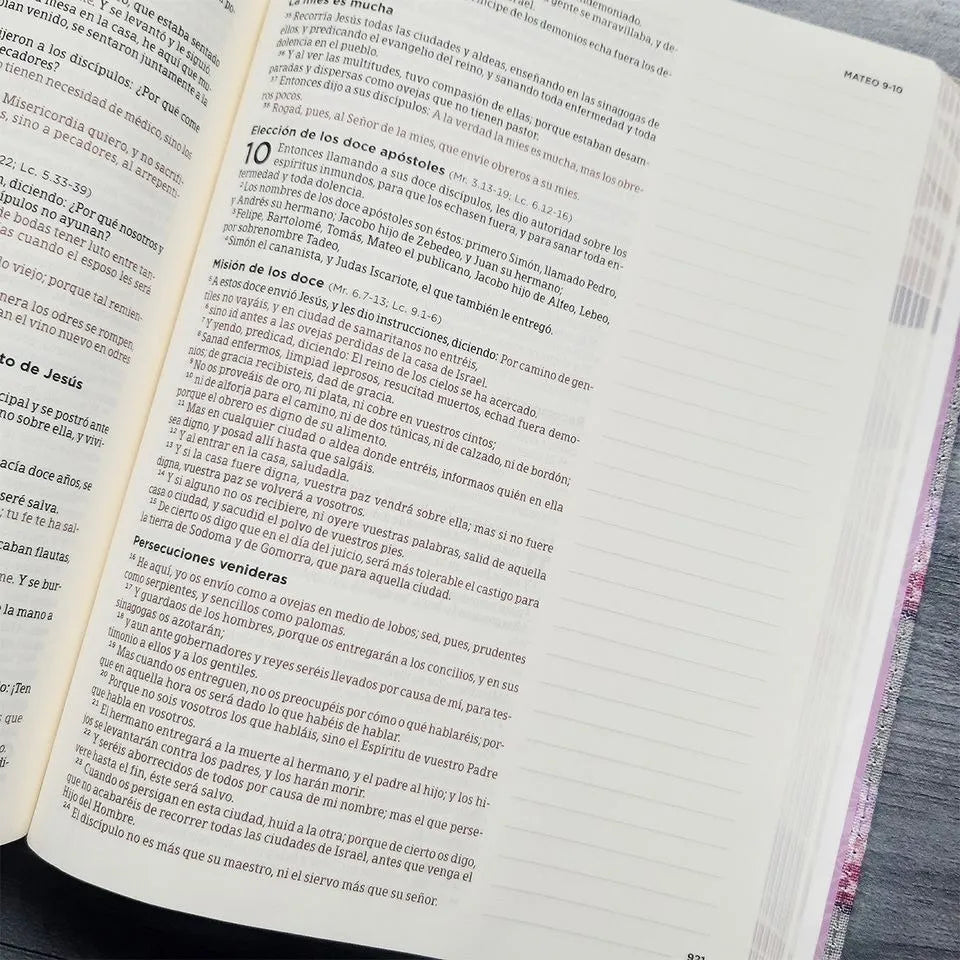 que estaba sentado
Y se levantó y le siguió.
mesa en la casa, he aquí que mu-
venido, se sentaron juntamente a la
dijeron a los discípulos: ¿Por qué come
pecadores?
tienen necesidad de médico, sino los
Misericordia quiero, y no sacrifi-
sino a pecadores, al arrepenti-
22; Lc. 5.33-39)
diciendo: ¿Por qué nosotros y
no ayunan?
de bodas tener luto entre tan-
cuando el esposo les será
viejo; porque tal remien-
los odres se rompen,
an el vino nuevo en odres
to de Jesús
cipal y se postró ante
sobre ella, y vivi-
hacía doce años, se
seré salva.
tu fe te ha sal-
caban flautas,
Y se bur-
la mano a
¡Ten
que
MATEO 9-10
endemoniado.
gente se maravillaba, y de-
príncipe de los demonios echa fuera los de-
La mies es mucha
35 Recorría Jesús todas las ciudades y aldeas, enseñando en las sinagogas de
ellos, y predicando el evangelio del reino, y sanando toda enfermedad y toda
dolencia en el pueblo.
36 Y al ver las multitudes, tuvo compasión de ellas; porque estaban desam-
paradas y dispersas como ovejas que no tienen pastor.
37 Entonces dijo a sus discípulos: A la verdad la mies es mucha, mas los obre-
ros pocos.
38 Rogad, pues, al Señor de la mies, que envíe obreros a su mies.
Elección de los doce apóstoles (Mr. 3.13-19; Lc. 6.12-16)
10 Entonces llamando a sus doce discípulos, les dio autoridad sobre los
espíritus inmundos, para que los echasen fuera, y para sanar toda en-
fermedad y toda dolencia.
2 Los nombres de los doce apóstoles son éstos: primero Simón, llamado Pedro,
y Andrés su hermano; Jacobo hijo de Zebedeo, y Juan su hermano;
3 Felipe, Bartolomé, Tomás, Mateo el publicano, Jacobo hijo de Alfeo, Lebeo,
por sobrenombre Tadeo,
4 Simón el cananista, y Judas Iscariote, el que también le entregó.
Misión de los doce (Mr. 6.7-13; Lc. 9.1-6)
5 A estos doce envió Jesús, y les dio instrucciones, diciendo: Por camino de gen-
tiles no vayáis, y en ciudad de samaritanos no entréis,
6 sino id antes a las ovejas perdidas de la casa de Israel.
7 Y yendo, predicad, diciendo: El reino de los cielos se ha acercado.
8 Sanad enfermos, limpiad leprosos, resucitad muertos, echad fuera demo-
nios; de gracia recibisteis, dad de gracia.
9 No os proveáis de oro, ni plata, ni cobre en vuestros cintos;
10 ni de alforja para el camino, ni de dos túnicas, ni de calzado, ni de bordón;
porque el obrero es digno de su alimento.
11 Mas en cualquier ciudad o aldea donde entréis, informaos quién en ella
sea digno, y posad allí hasta que salgáis.
12 Y al entrar en la casa, saludadla.
13 Y si la casa fuere digna, vuestra paz vendrá sobre ella; mas si no fuere
digna, vuestra paz se volverá a vosotros.
14 Y si alguno no os recibiere, ni oyere vuestras palabras, salid de aquella
casa o ciudad, y sacudid el polvo de vuestros pies.
15 De cierto os digo que en el día del juicio, será más tolerable el castigo para
la tierra de Sodoma y de Gomorra, que para aquella ciudad.
Persecuciones venideras
16 He aquí, yo os envío como a ovejas en medio de lobos; sed, pues, prudentes
como serpientes, y sencillos como palomas.
17 Y guardaos de los hombres, porque os entregarán a los concilios, y en sus
sinagogas os azotarán;
18 y aun ante gobernadores y reyes seréis llevados por causa de mí, para tes-
timonio a ellos y a los gentiles.
19 Mas cuando os entreguen, no os preocupéis por cómo o qué hablaréis; por-
que en aquella hora os será dado lo que habéis de hablar.
20 Porque no sois vosotros los que habláis, sino el Espíritu de vuestro Padre
que habla en vosotros.
21 El hermano entregará a la muerte al hermano, y el padre al hijo; y los hi-
jos se levantarán contra los padres, y los harán morir.
22 Y seréis aborrecidos de todos por causa de mi nombre; mas el que perse-
vere hasta el fin, éste será salvo.
23 Cuando os persigan en esta ciudad, huid a la otra; porque de cierto os digo,
que no acabaréis de recorrer todas las ciudades de Israel, antes que venga el
Hijo del Hombre.
24 El discípulo no es más que su maestro, ni el siervo más que su señor.
921